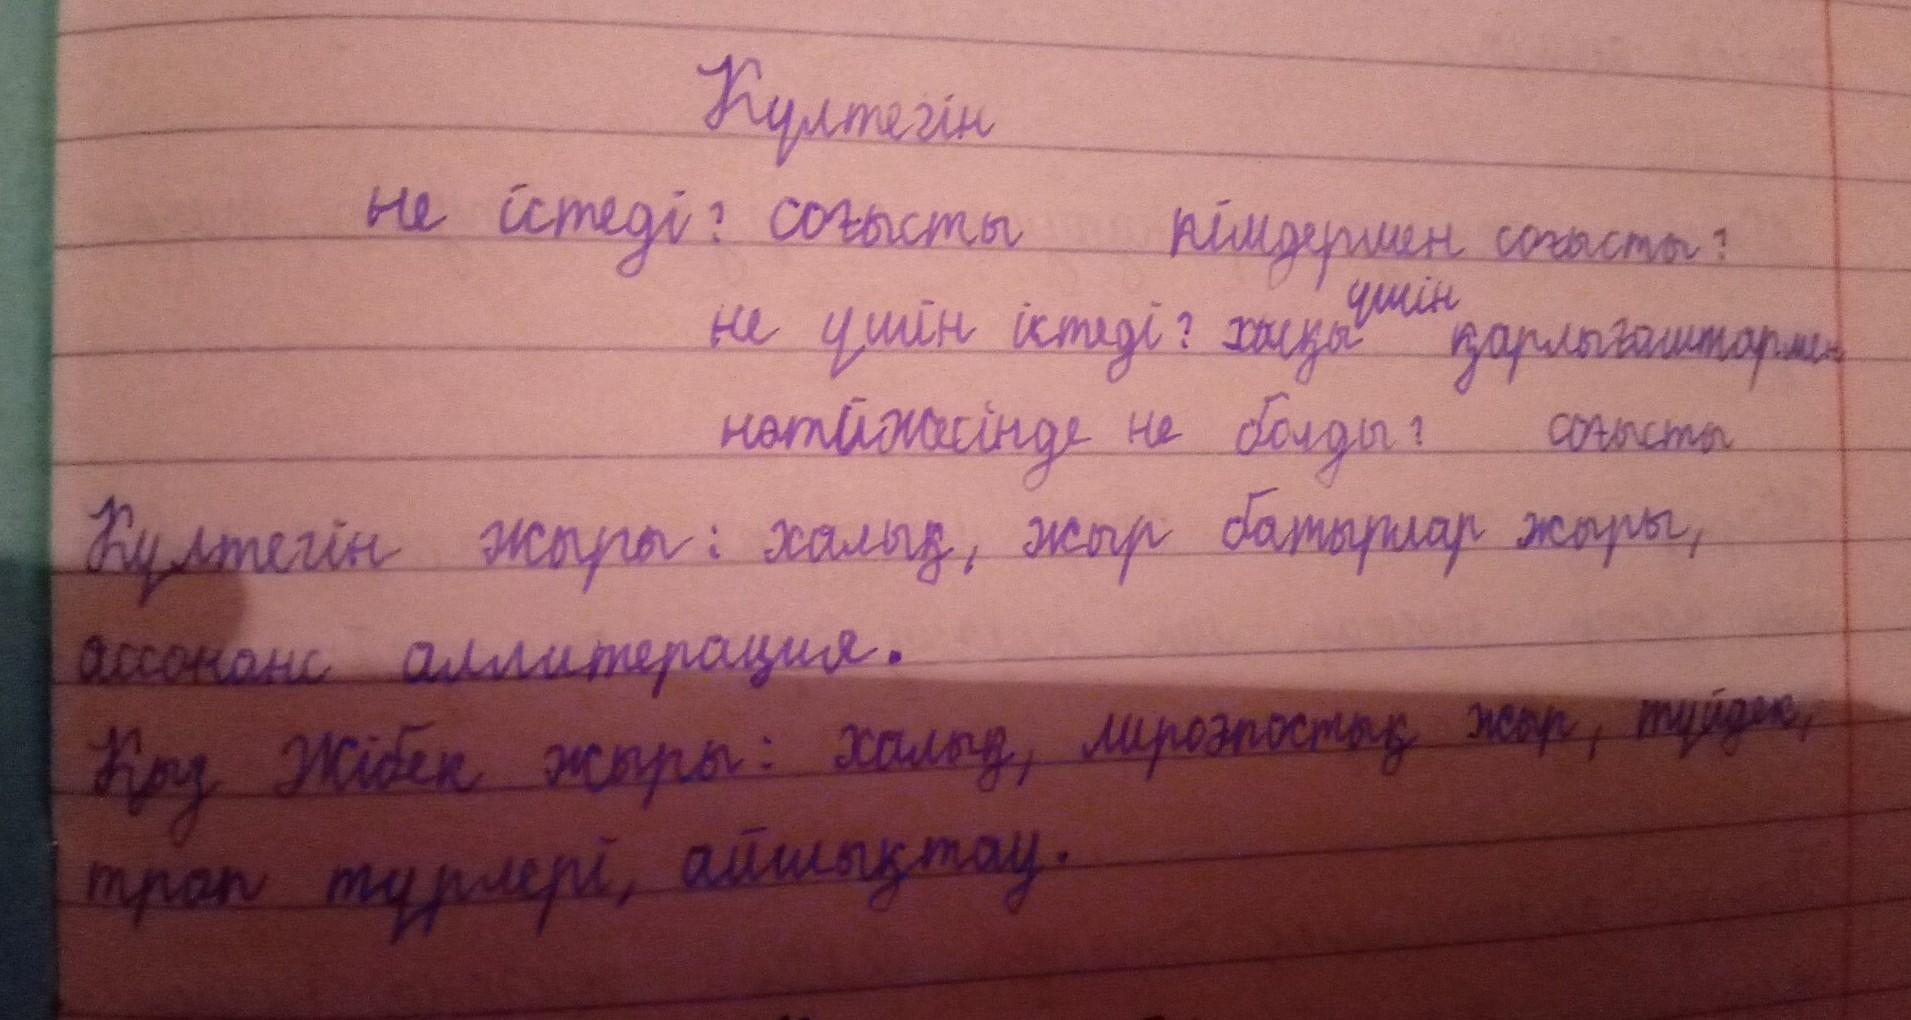 Күлтегін
не істеді? соғысты кімдермен соғысты?
не үшін істеді? халқы үшін қарлығаштармен
нәтижесінде не болды? соғысты
Күлтегін жыры: халық, жыр батырлар жыры,
ассонанс аллитерация.
Қыз Жібек жыры: халық, лироэпостық жыр, түйдек,
троп түрлері, айшықтау.